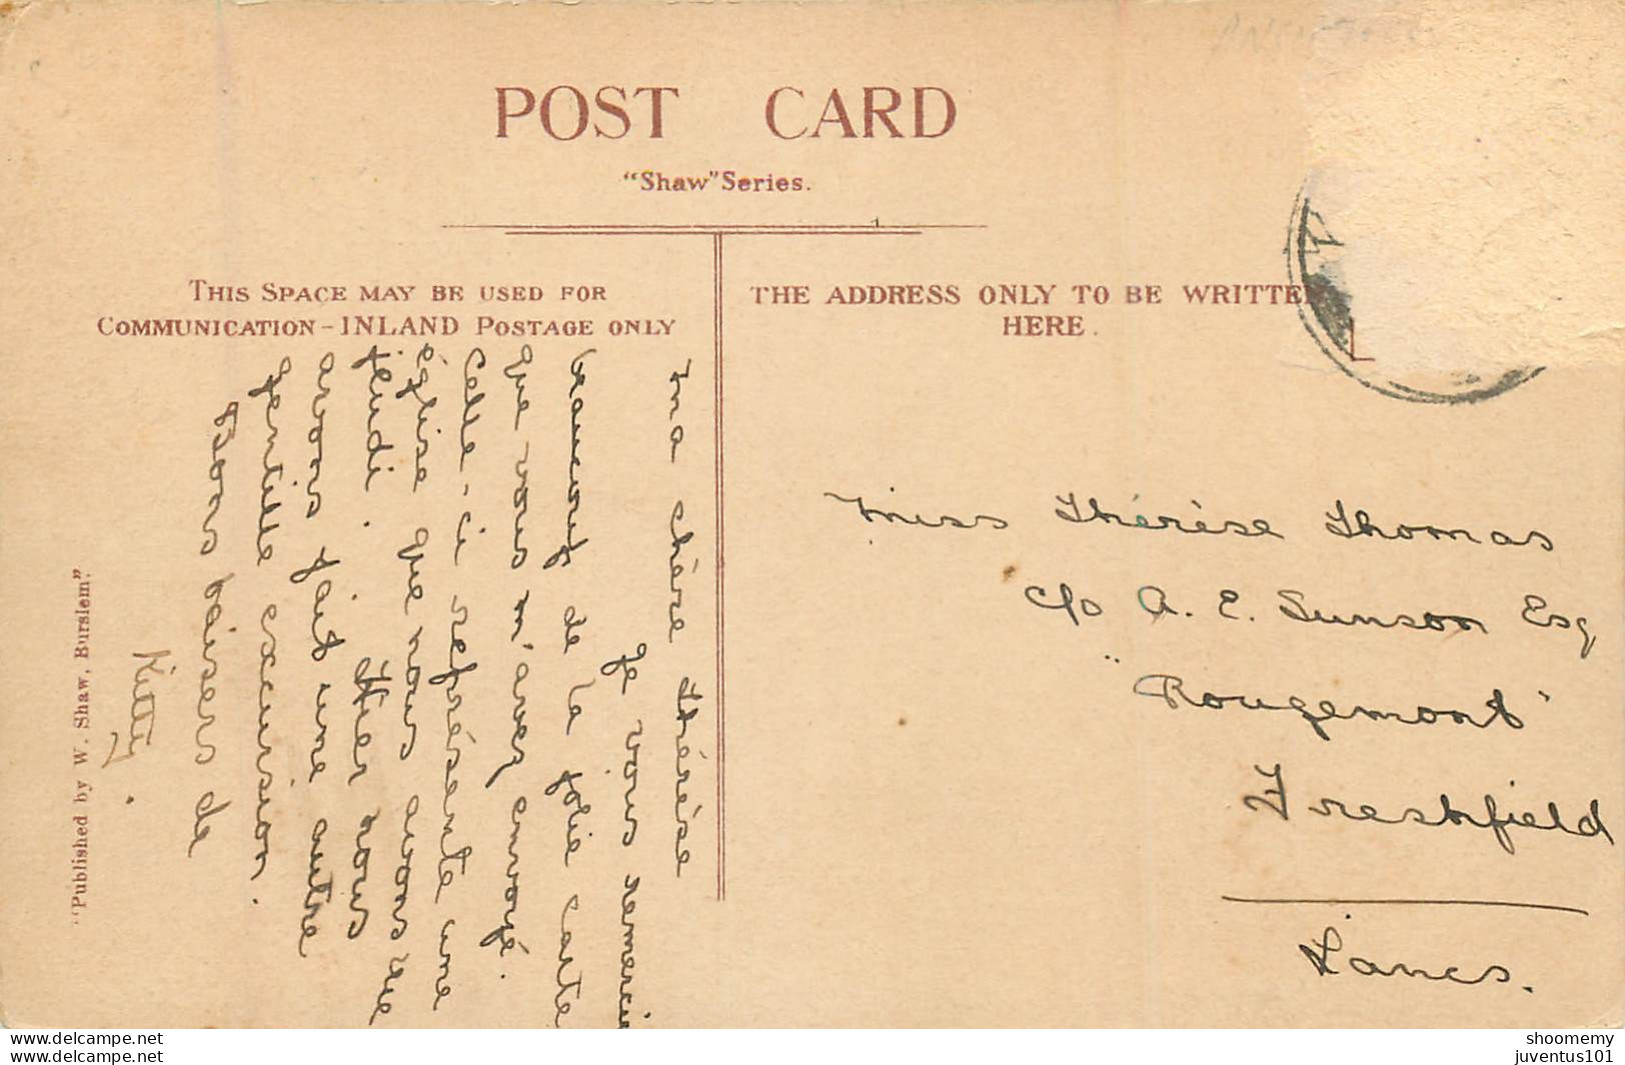 POST CARD
"Shaw" Series.
THIS SPACE MAY BE USED FOR
COMMUNICATION - INLAND POSTAGE ONLY
THE ADDRESS ONLY TO BE WRITTEN
HERE.
Ma chère Thérèse
Je vous remercie
beaucoup de la jolie carte
que vous m'avez envoyé.
Celle-ci représente une
église que nous avons vue
jeudi. Hier nous
avons fait une autre
gentille excursion.
Bons baisers de
Kitty.
Miss Thérèse Thomas
c/o A. E. Sunson Esq
"Rougemont"
Freshfield
Lancs.
"Published by W. Shaw, Burslem."
www.delcampe.net
www.delcampe.net
shoomemy
juventus101